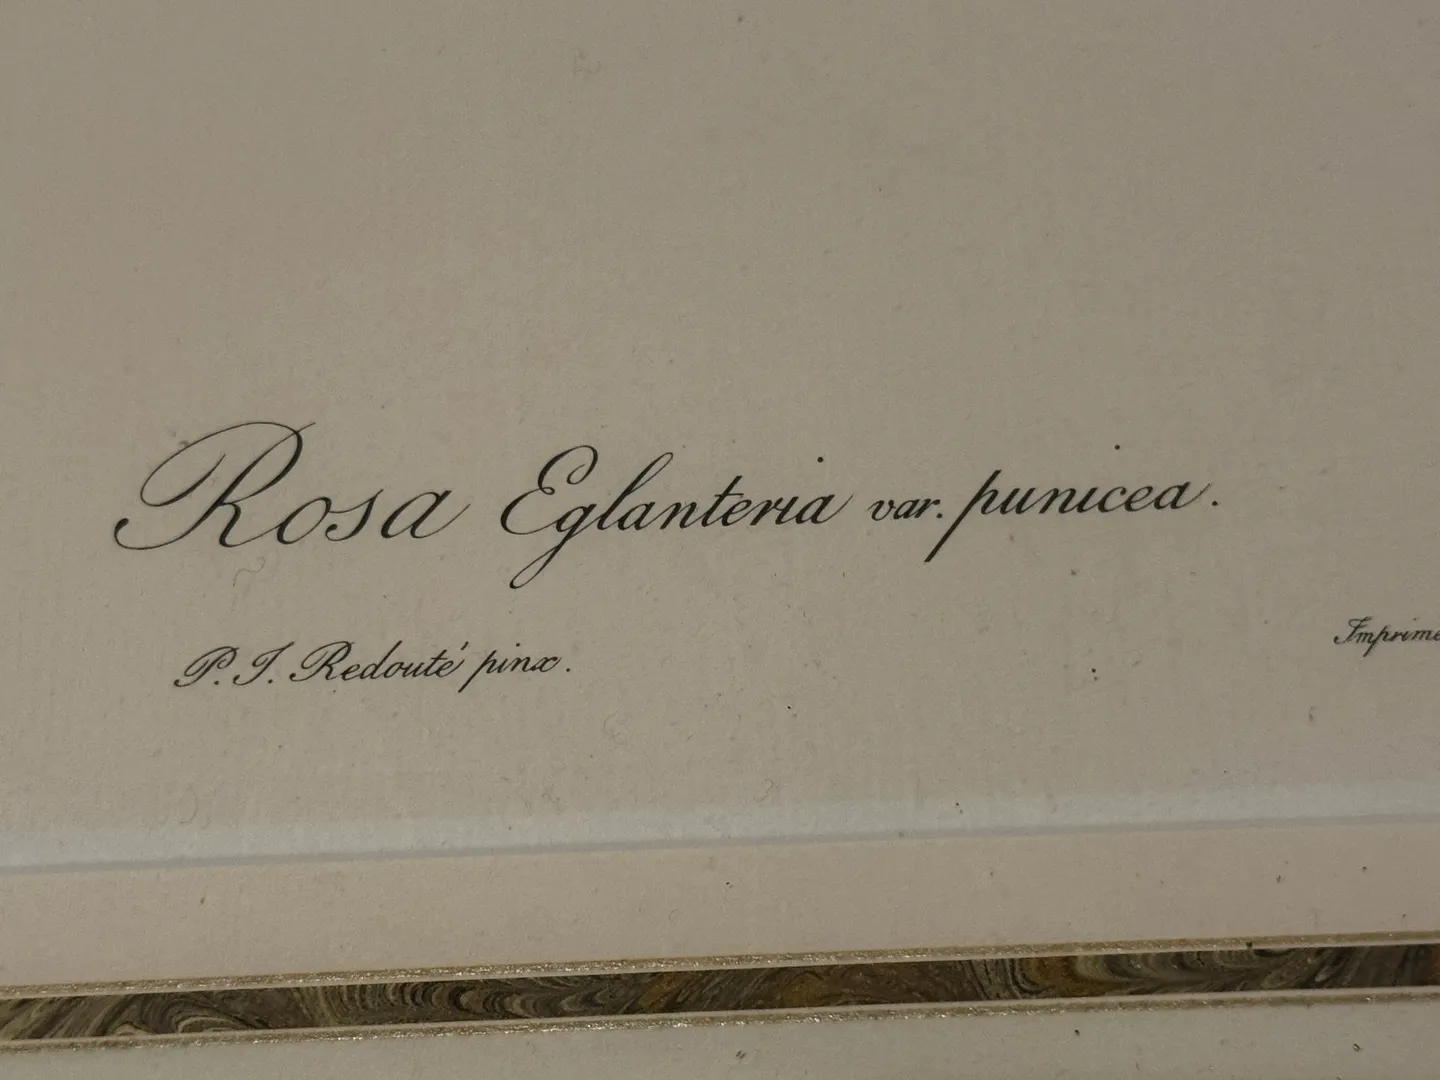 Rosa Eglanteria var. punicea.
P. J. Redouté pinx.